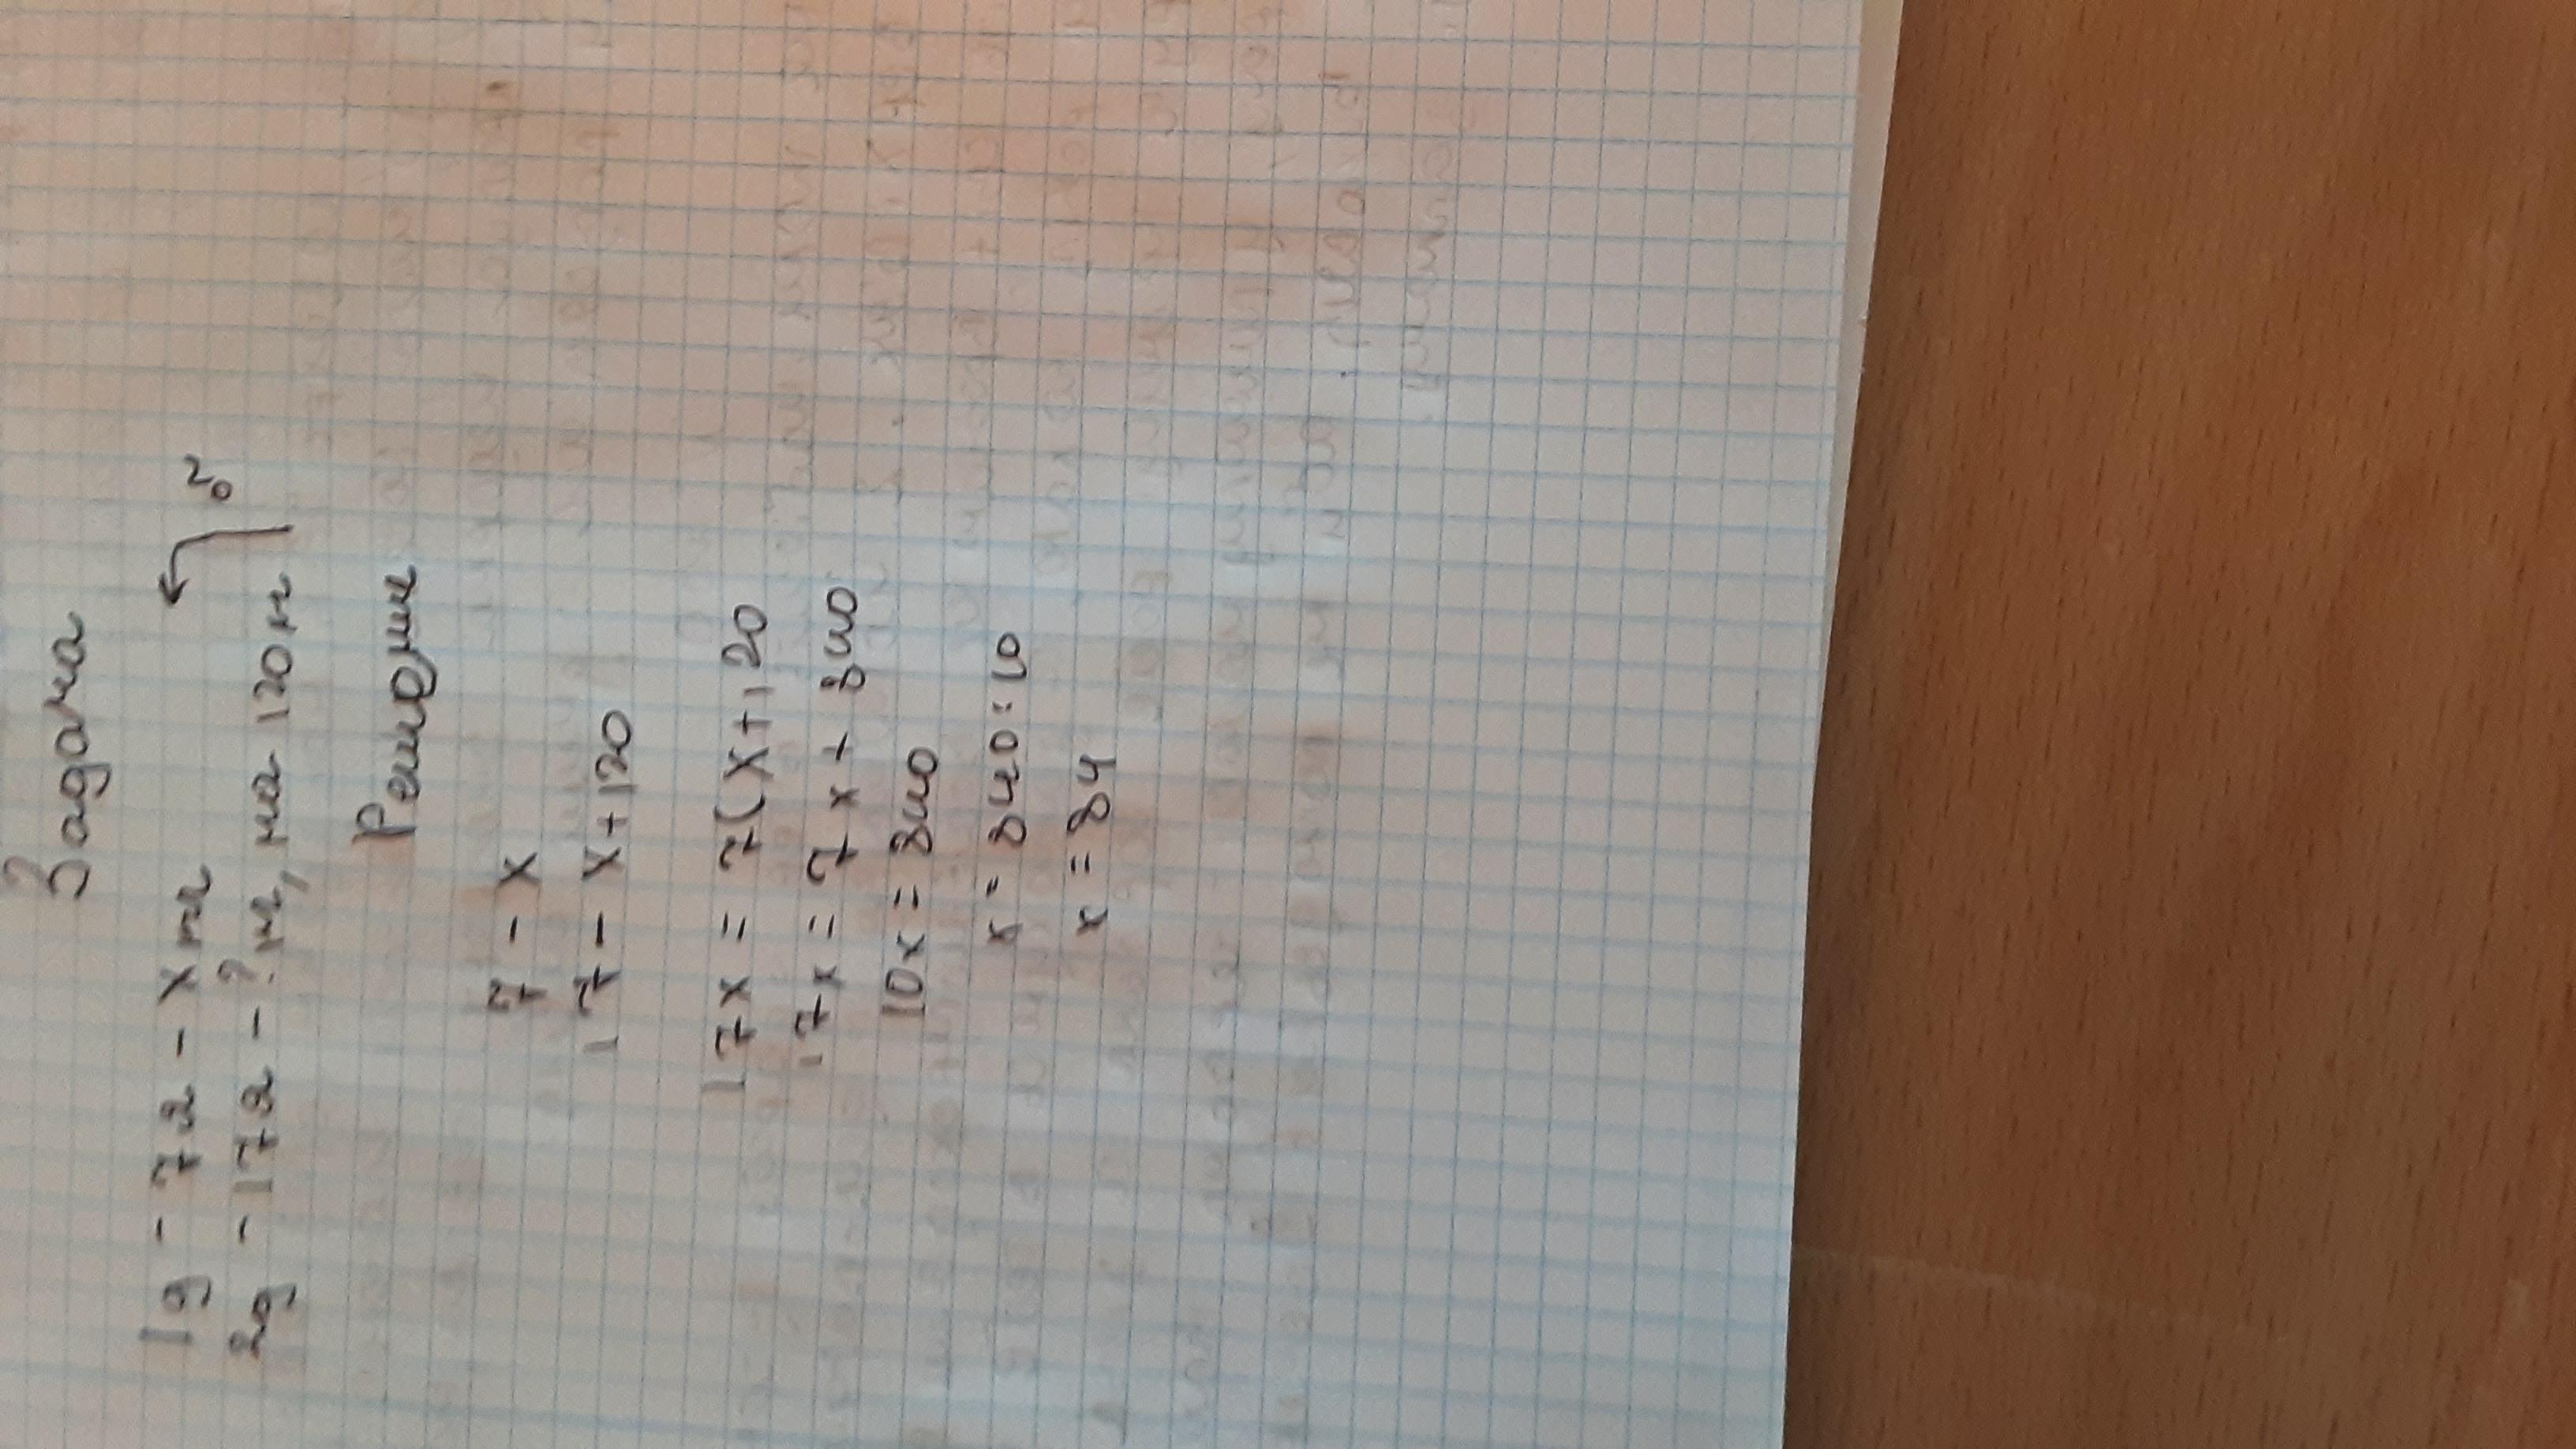 Задача
1д - 7г - х м
2д - 17г - ? м, на 120 м б
Решение
7 - х
17 - х+120
17х = 7(х+120
17х = 7х + 840
10х = 840
х = 840:10
х = 84